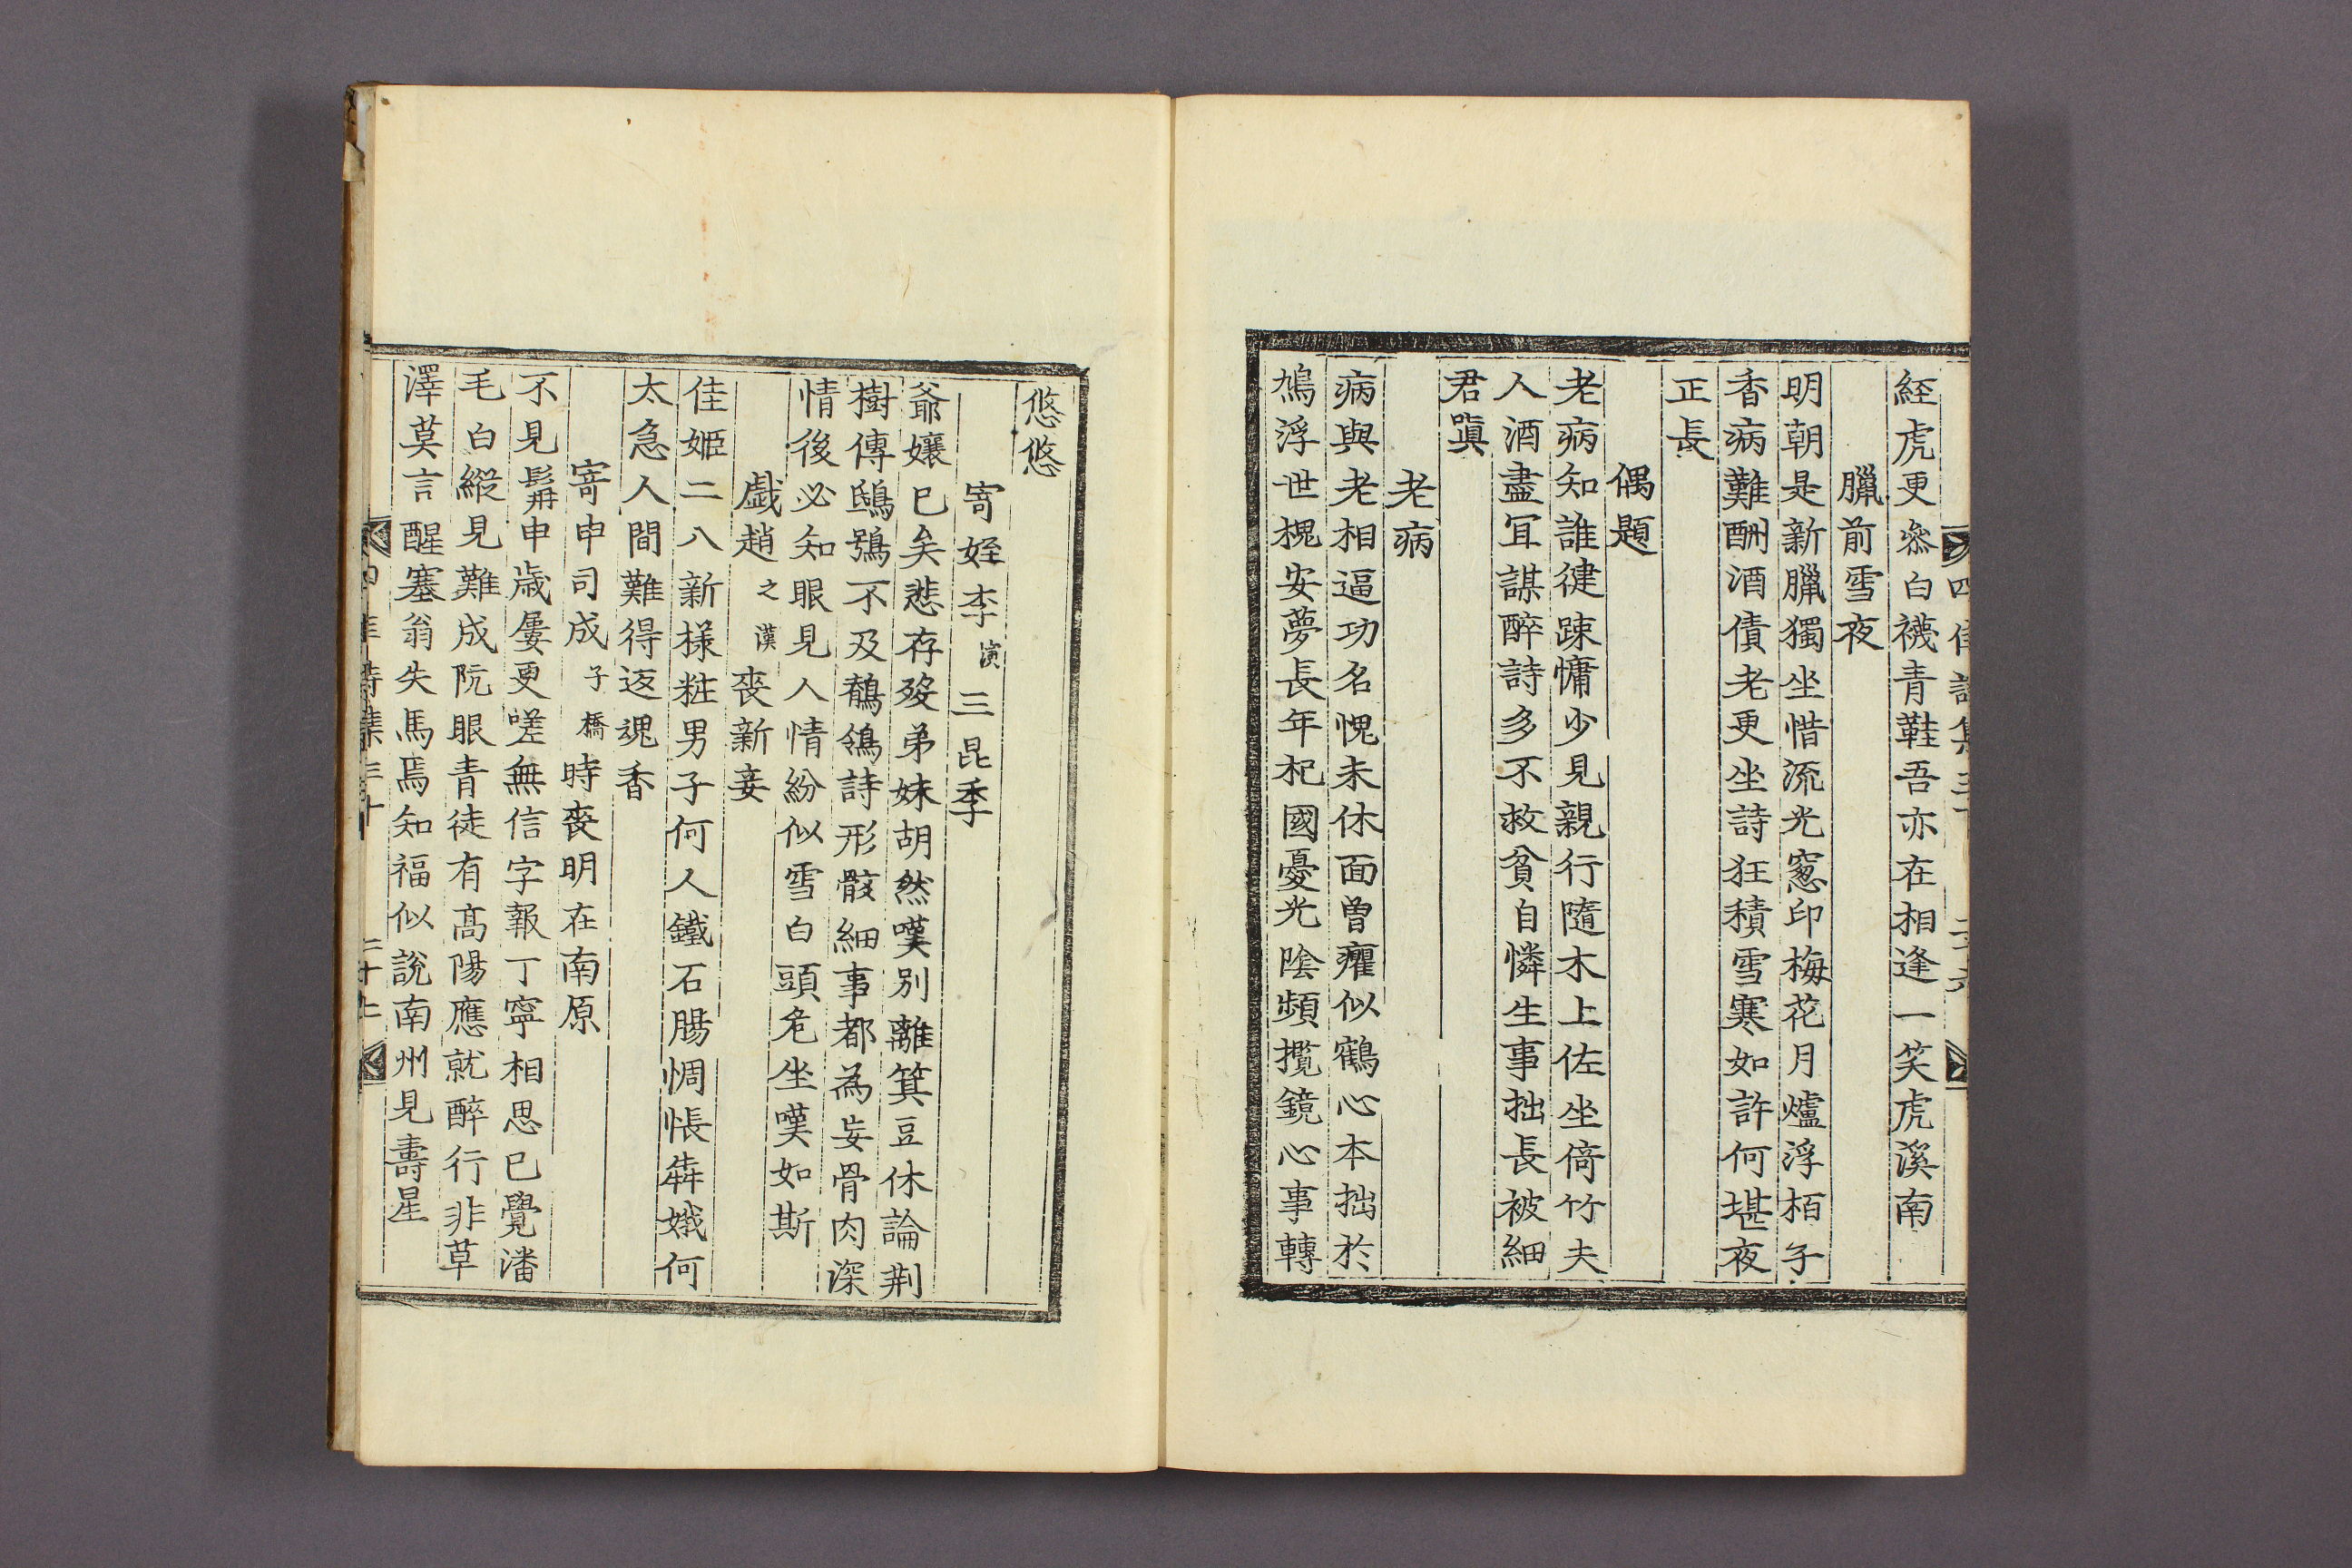 經虎更叅白襪青鞋吾亦在相逢一笑虎溪南
臘前雪夜
明朝是新臘獨坐惜流光窓印梅花月爐浮栢子
香病難酬酒債老更坐詩狂積雪寒如許何堪夜
正長
偶題
老病知誰健踈慵少見親行隨木上佐坐倚竹夫
人酒盡宜謀醉詩多不救貧自憐生事拙長被細
君嗔
老病
病與老相逼功名愧未休面曾癯似鶴心本拙於
鳩浮世槐安夢長年杞國憂光陰頻攬鏡心事轉
悠悠
寄姪李演三昆季
爺孃已矣悲存歿弟妹胡然嘆別離箕豆休論荆
樹傳鴟鴞不及鶺鴒詩形骸細事都為妄骨肉深
情後必知眼見人情紛似雪白頭危坐嘆如斯
戱趙之漢喪新妾
佳姬二八新様粧男子何人鐵石腸惆悵犇娥何
太急人間難得返魂香
寄申司成子橋時喪明在南原
不見髯申歲屢更嗟無信字報丁寧相思已覺潘
毛白縱見難成阮眼青徒有髙陽應就醉行非草
澤莫言醒塞翁失馬焉知福似說南州見壽星